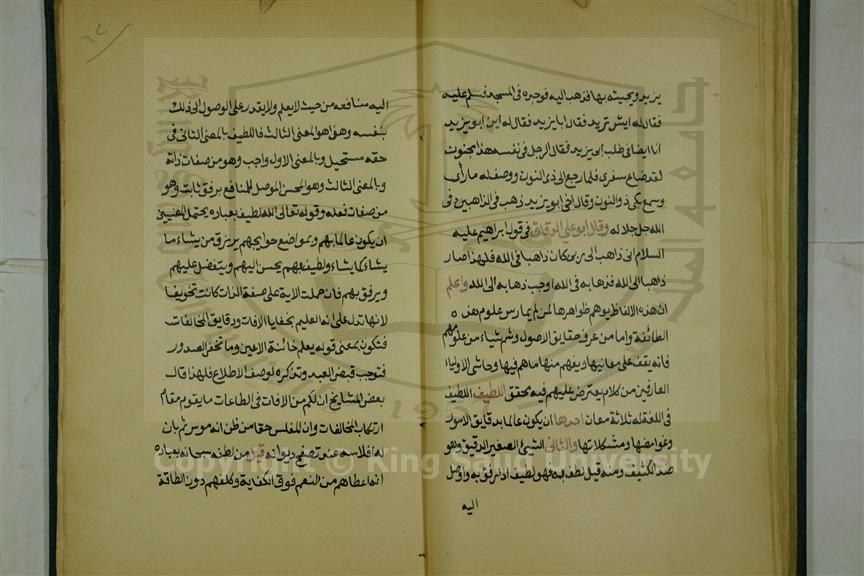 يزيد ويجيئه بها فذهب اليه فوجده في المسجد فسلم عليه
فقال له ايش تريد فقال ابا يزيد فقال له اين ابو يزيد
انا ايضا في طلب ابى يزيد فقال الرجل في نفسه هذا مجنون
لقد ضاع سفرى فلما رجع الى ذى النون ووصف له ما رأى
وسمع بكى ذو النون وقال اخى ابو يزيد ذهب في الذاهبين في
الله جل جلاله وقال ابو على الدقاق في قول ابراهيم عليه
السلام انى ذاهب الى ربى كان ذاهبا في الله فلهذا صار
ذاهبا الى الله فذهابه في الله اوجب ذهابه الى الله واعلم
ان هذه الالفاظ يوهم ظواهرها لمن لم يمارس علوم هذه
الطائفة واما من عرف حقايق الاصول وشم شيأ من علومهم
فانه يقف على معانيها ويفهم منها ما هم فيها وحاشى الاولياء
العارفين من كلام يعترض عليهم فيه بحقق اللطيف اللطيف
في اللغة له ثلاثة معان احدها ان يكون عالما بدقايق الامور
وغوامضها ومشكلاتها والثانى الشيئ الصغير الدقيق وهو
ضد الكثيف ومنه قيل لطف به وهو لطيف اذا رفق به واوصل
اليه
اليه منافعه من حيث لا يعلم ولا يقدر على الوصول الى ذلك
بنفسه وهو اهو المعنى الثالث فاللطيف بالمعنى الثانى في
حقه مستحيل وبالمعنى الاول واجب وهو من صفات ذاته
وبالمعنى الثالث وهو المحسن الموصل للمنافع برفق ثابت وهو
من صفات فعله وقوله تعالى الله لطيف بعباده يحتمل المعنيين
ان يكون عالما بهم وبمواضع حوايجهم يرزق من يشاء ما
يشاء كما يشاء ولطيف بهم يحسن اليهم ويتفضل عليهم
ويرفق بهم فان حملت الاية على صفة الذات كانت تخويفا
لانها تدل على انه العليم بخفايا الافات ودقايق المخالفات
فتكون بمعنى قوله يعلم خائنة الاعين وما تخفى الصدور
فتوجب قبض العبد وتذكره لوصف الاطلاع فلهذا قال
بعض المشايخ ان لكم من الافات في الطاعات ما يقوم مقام
ارتكاب المخالفات وان المفلس حقا من ظن انه موسر ثم بان
له افلاسه عند تصفح ديوانه قيل من لطفه سبحانه بعباده
انه اعطاهم من النعم فوق الكفاية وكلفهم دون الطاقة
Copyright © King Saud University